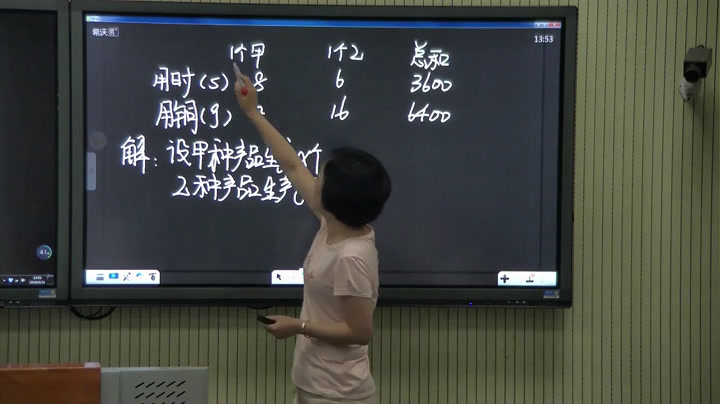 希沃
13:53
1个甲 1个乙 总和
用时(s) 8 6 3600
用铜(g) 16 6400
解：设甲种产品生产x个
乙种产品生产